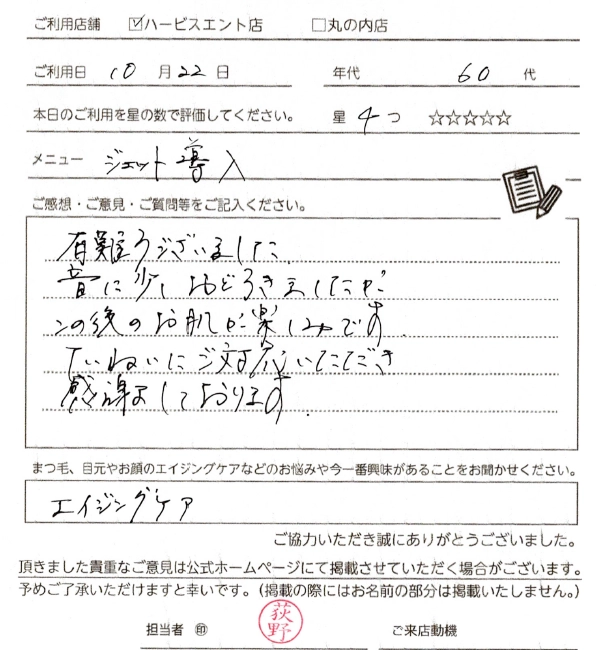 ご利用店舗 ☑ハービスエント店 □丸の内店
ご利用日 10 月 22 日 年代 60 代
本日のご利用を星の数で評価してください。 星 4 つ ☆☆☆☆☆
メニュー ジェット導入
ご感想・ご意見・ご質問等をご記入ください。
有難うございました。
音に少しおどろきましたが
この後のお肌が楽しみです。
ていねいにご対応いただき
感謝しております。
まつ毛、目元やお顔のエイジングケアなどのお悩みや今一番興味があることをお聞かせください。
エイジングケア
ご協力いただき誠にありがとうございました。
頂きました貴重なご意見は公式ホームページにて掲載させていただく場合がございます。
予めご了承いただけますと幸いです。(掲載の際にはお名前の部分は掲載いたしません。)
担当者 ㊞ 荻野 ご来店動機